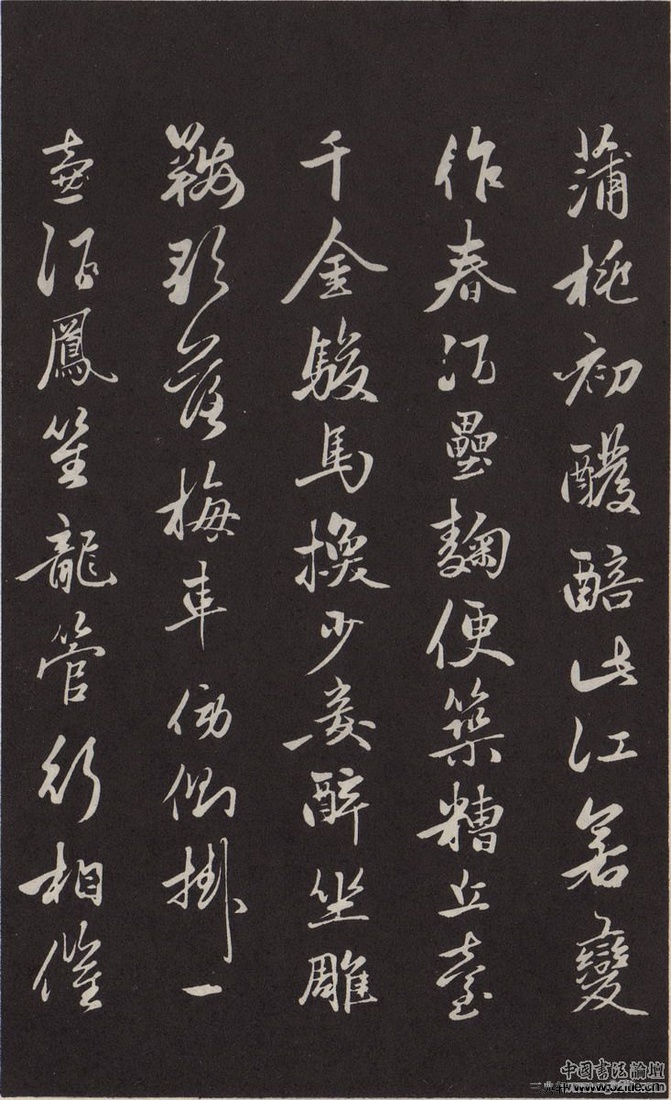 蒲桃初醱醅此江若變
作春酒壘麴便築糟丘臺
千金駿馬換少妾醉坐雕
鞍歌落梅車傍側掛一
壺酒鳳笙龍管行相催
中國書法論壇